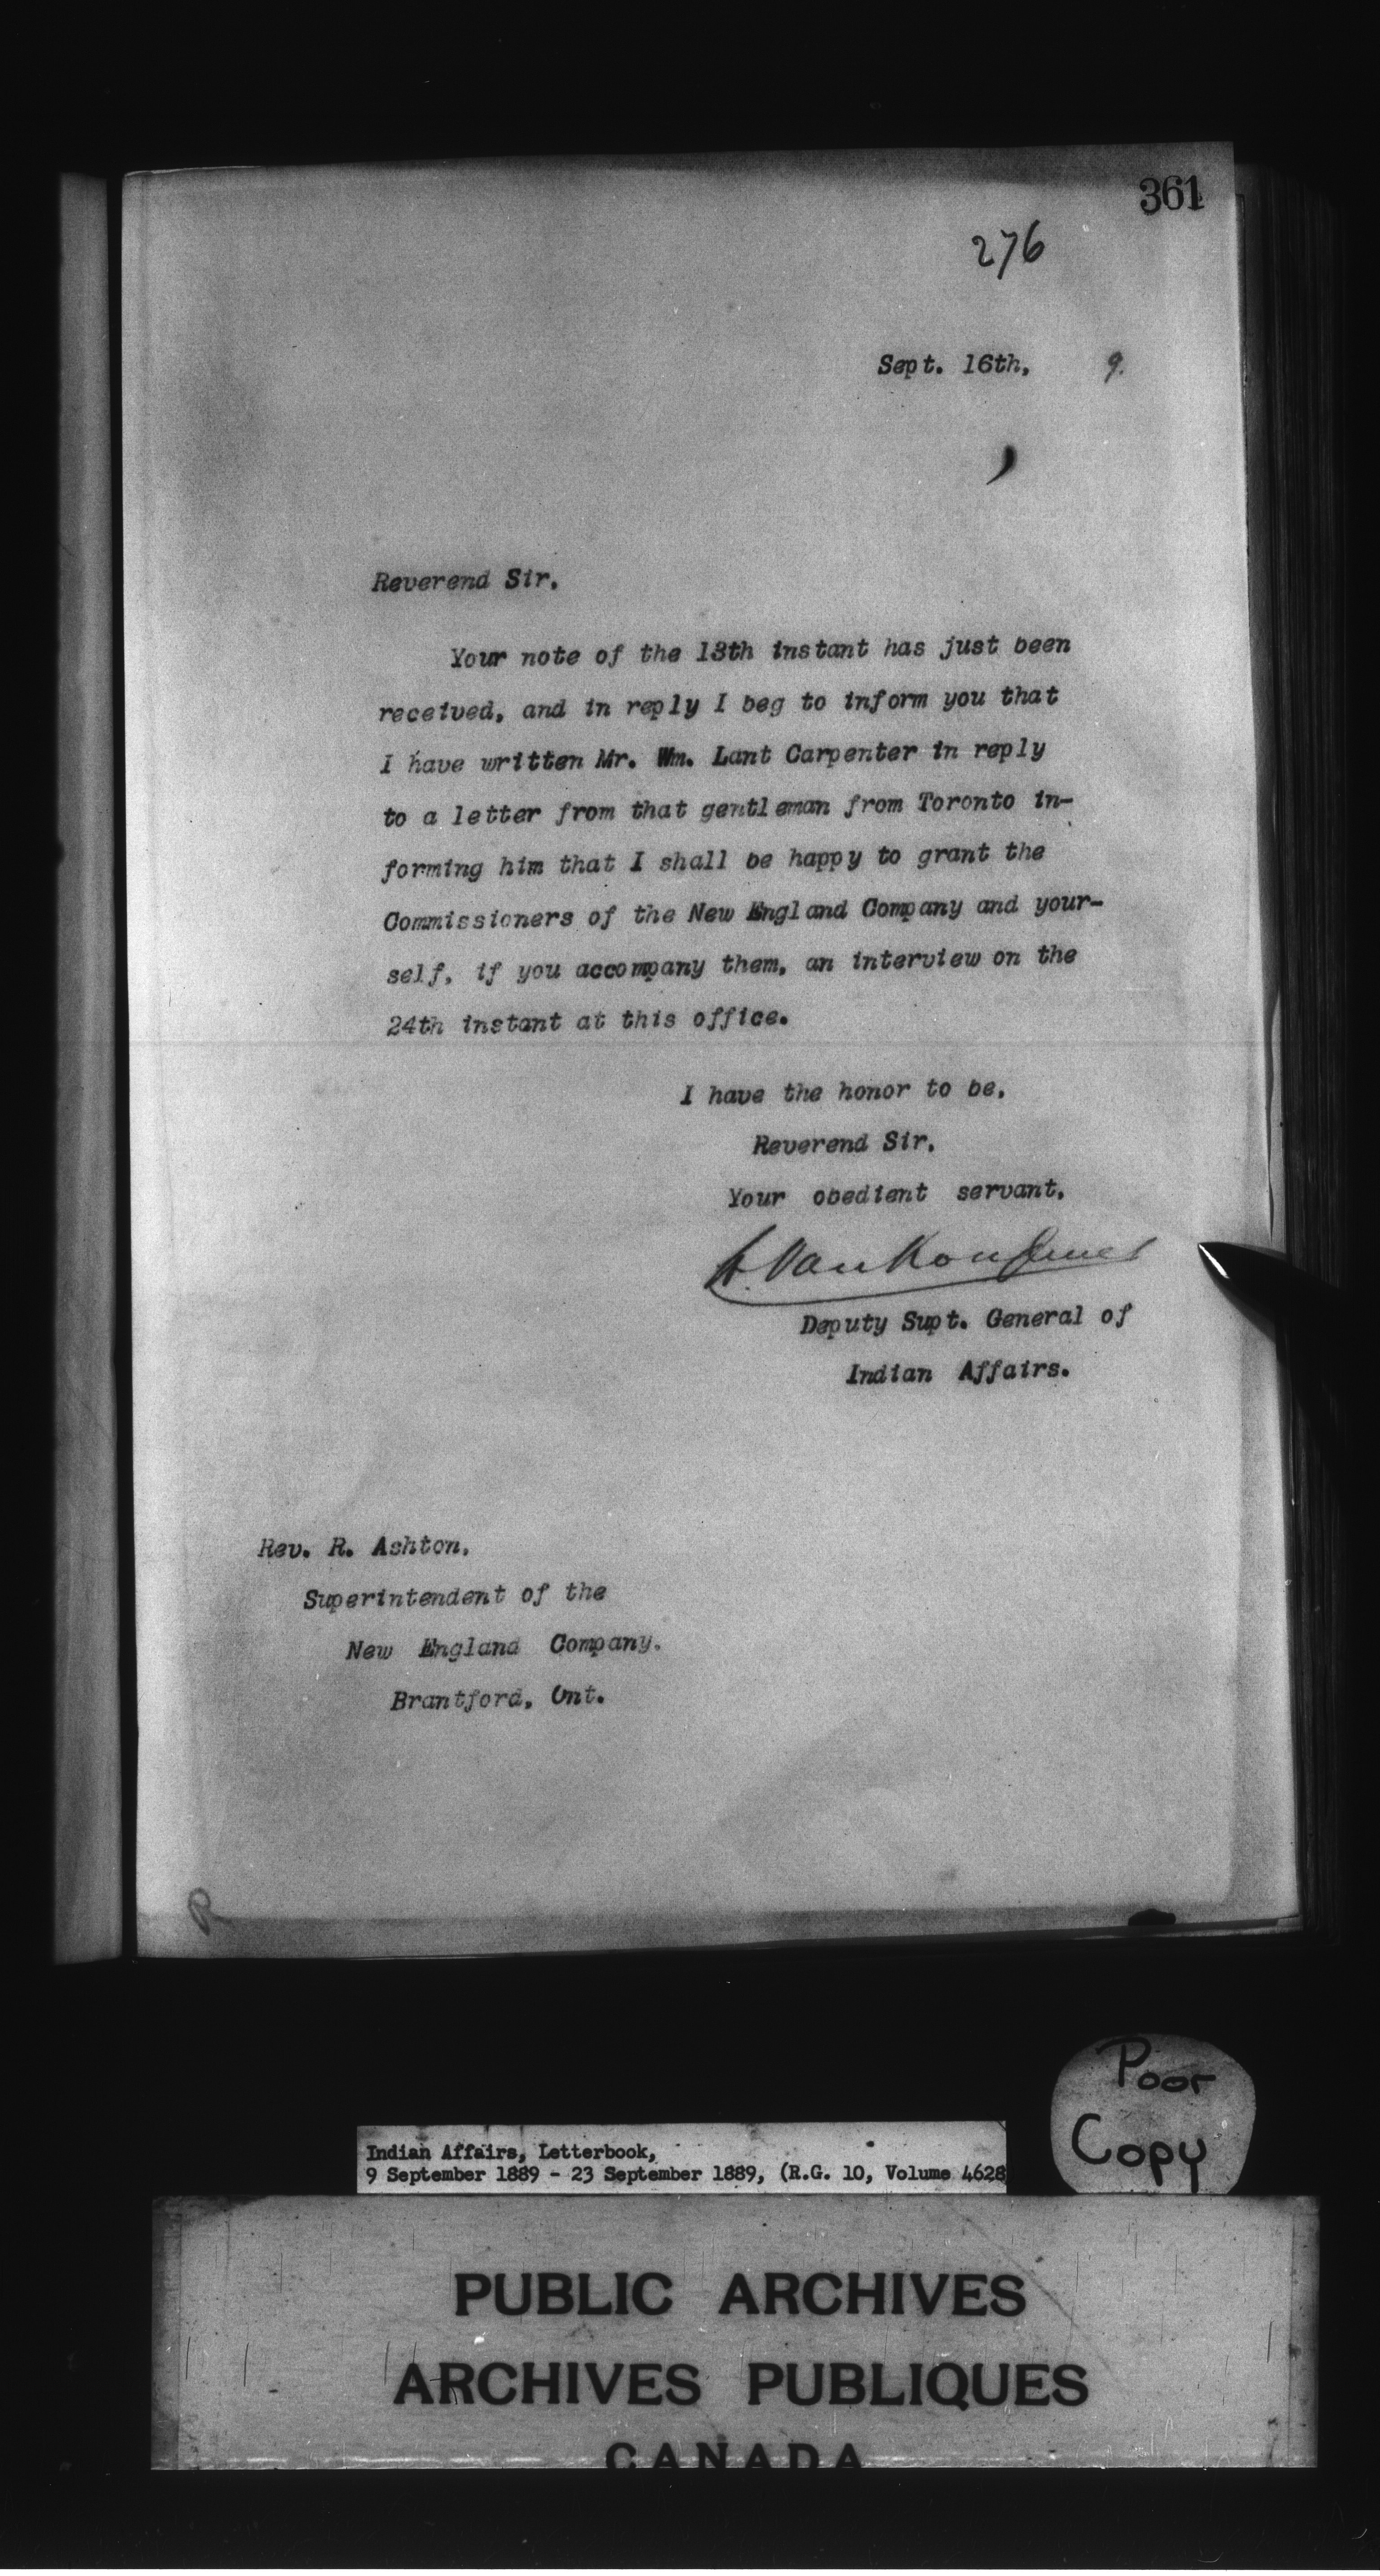 361
276
Sept. 16th, 9.
Reverend Sir,
Your note of the 13th instant has just been
received, and in reply I beg to inform you that
I have written Mr. Wm. Lant Carpenter in reply
to a letter from that gentleman from Toronto in-
forming him that I shall be happy to grant the
Commissioners of the New England Company and your-
self, if you accompany them, an interview on the
24th instant at this office.
I have the honor to be,
Reverend Sir,
Your obedient servant,
L. VanKoughnet
Deputy Supt. General of
Indian Affairs.
Rev. R. Ashton,
Superintendent of the
New England Company,
Brantford, Ont.
R
Poor
Copy
Indian Affairs, Letterbook,
9 September 1889 - 23 September 1889, (R.G. 10, Volume 4628
PUBLIC ARCHIVES
ARCHIVES PUBLIQUES
CANADA